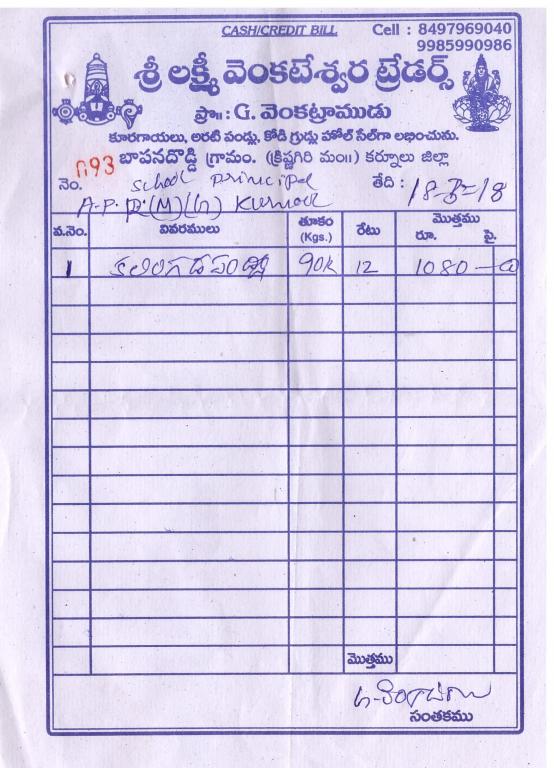 CASH/CREDIT BILL Cell : 8497969040
9985990986
శ్రీ లక్ష్మీ వెంకటేశ్వర ట్రేడర్స్
ప్రొ॥ : G. వెంకట్రాముడు
కూరగాయలు, అరటి పండ్లు, కోడి గ్రుడ్లు హోల్ సేల్‌గా లభించును.
బాపనదొడ్డి గ్రామం. (క్రిష్ణగిరి మం॥) కర్నూలు జిల్లా
నెం. 093 School principal తేది : 18-8-18
A.P. R.(M)(G) Kurnool
వ.నెం. వివరములు తూకం (Kgs.) రేటు మొత్తము రూ. పై.
1 కలింగడ పండ్లు 90K 12 1080
మొత్తము
సంతకము